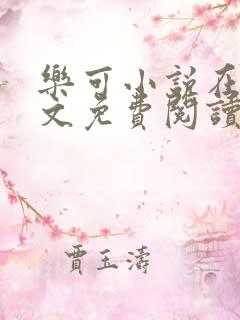 樂可小說在
文免費閱讀
賈玉濤